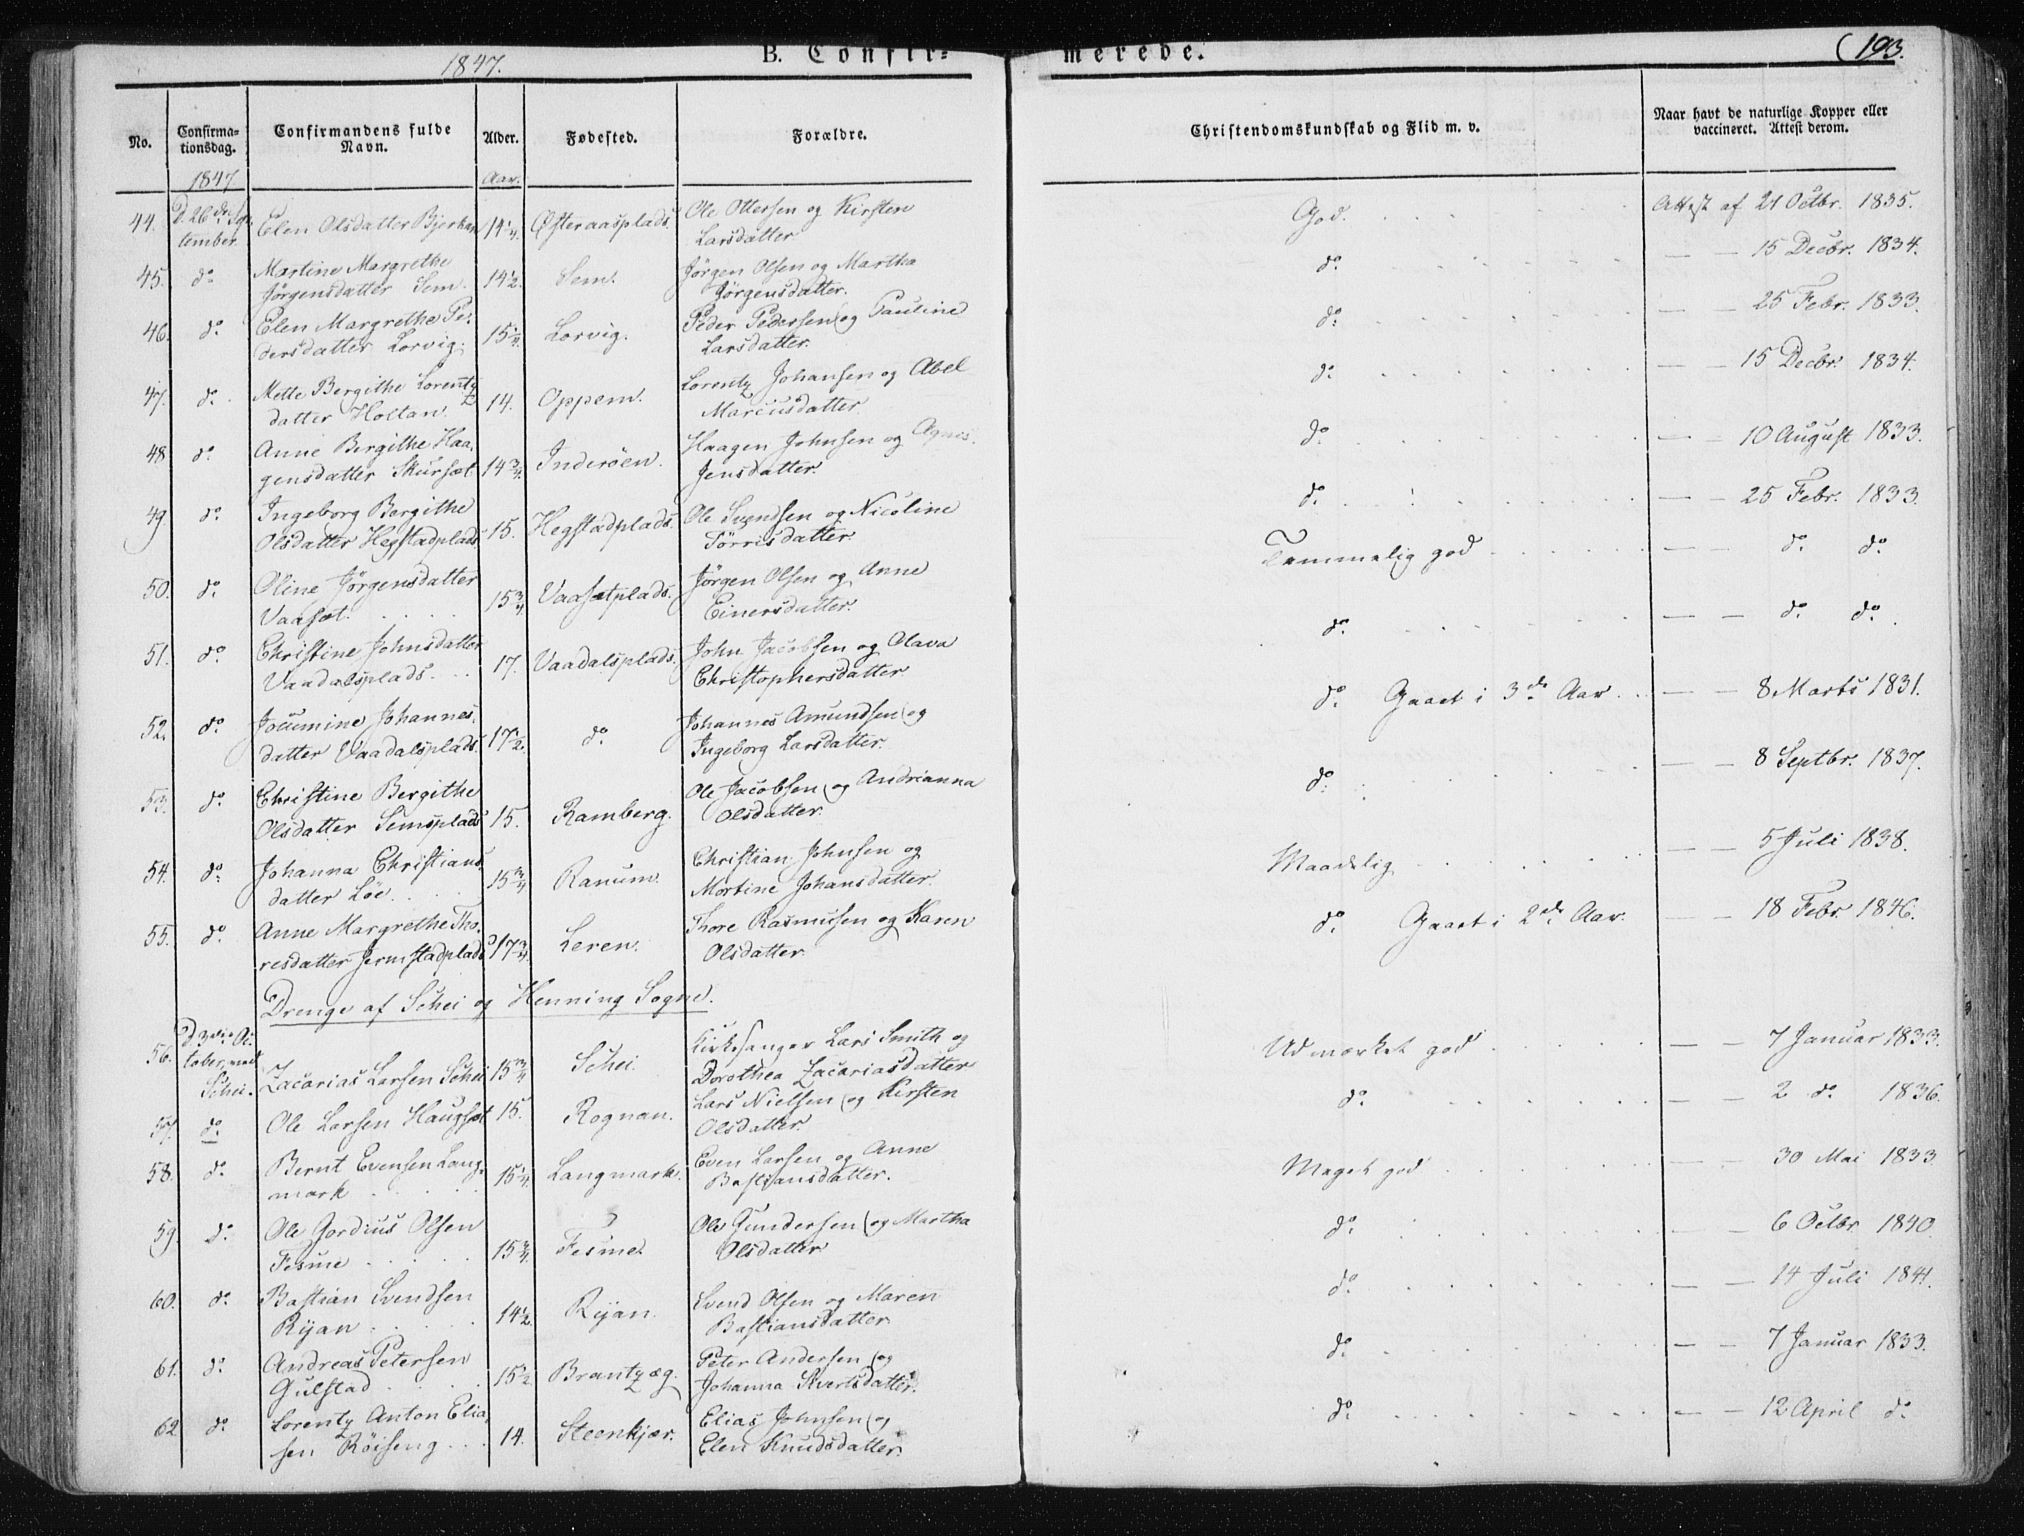 1847.
B. Confir-
merede.
193.
No.
Confirma-
tionsdag.
Confirmandens fulde
Navn.
Alder.
Fødested.
Forældre.
Christendomskundskab og Flid m. v.
Naar havt de naturlige Kopper eller
vaccineret. Attest derom.
1847
Aar.
44. D. 26de Sep- Elen Olsdatter Bjerkan 14 1/4 Østeraasplads. Ole Ottersen og Kirsten God. Attest af 21 Octbr. 1835.
tember. Larsdatter
45. do Martine Margrethe 14 1/2. Sem. Jörgen Olsen og Martha do — — 15 Decbr. 1834.
Jörgensdatter Sem. Jörgensdatter.
46. do Elen Margrethe Pe- 15 1/4. Lorvig. Peder Pedersen og Pauline do — — 25 Febr. 1833.
dersdatter Lorvig. Larsdatter.
47. do Mette Bergithe Lorentz 14. Oppem. Lorentz Johansen og Abel do — — 15 Decbr. 1834.
datter Holtan. Marciusdatter
48 do Anne Bergithe Haa- 14 3/4. Inderöen. Haagen Johnsen og Agnes do — — 10 August 1833.
gensdatter Skursæt Jensdatter.
49 do Ingeborg Bergithe 15. Hegstadplads. Ole Svendsen og Nicoline do — — 25 Febr. 1833.
Olsdatter Hegstadplads Törrisdatter.
50. do Oline Jörgensdatter 15 3/4 Vaasætplads. Jörgen Olsen og Anne Temmelig god — — do do
Vaasæt. Einersdatter.
51. do Christine Johnsdatter 17. Vaadalsplads. John Jacobsen og Olava do — — do do.
Vaadalsplads. Christophersdatter
52. do Jocumine Johannes- 17 1/2. do Johannes Amundsen og do Gaaet i 3de Aar. — — 8 Marts 1831.
datter Vaadalsplads. Ingeborg Larsdatter.
53. do Christine Bergithe 15. Ramberg. Ole Jacobsen og Andrianna do — — 8 Septbr. 1837.
Olsdatter Semsplads Olsdatter.
54. do Johanna Christians- 15 3/4 Ranum. Christian Johnsen og Maadelig — — 5 Juli 1838.
datter Löe. Mortine Johansdatter.
55. do Anne Margrethe Tho- 17 3/4. Leren. Thore Rasmusen og Karen do Gaaet i 2de Aar. — — 18 Febr. 1846.
resdatter Jermstadplads Olsdatter
Drenge af Schei og Henning Sogne.
56. D. 3die Oc- Zacarias Larsen Schei 15 3/4 Schei. Kirkesanger Lars Smith og Udmærket god — — 7 Januar 1833.
tober, ved Dorothea Zacariasdatter
Schei.
57. do Ole Larsen Haugsæt 15. Rognan. Lars Nielsen og Kirsten do — — 2 do 1836.
Olsdatter.
58. do Bernt Evensen Lang- 15 1/4. Langmark. Even Larsen og Anne Meget god — — 30 Mai 1833
mark Bastiansdatter.
59. do Ole Gordius Olsen 15 3/4. Fesme. Ole Gundersen og Martha do — — 6 Octbr 1840.
Fesme Olsdatter
60. do Bastian Svendsen 14 1/2. Ryan. Svend Olsen og Maren do — — 14 Juli 1841.
Ryan Bastiansdatter
61. do Andreas Petersen 15 1/2 Brantzæg. Peter Andersen og do — — 7 Januar 1833.
Gulstad Johanna Sivertsdatter.
62 do Lorentz Anton Elia- 14. Steenkjær. Elias Johnsen og do — — 12 April do
sen Röiseng Elen Knudsdatter.